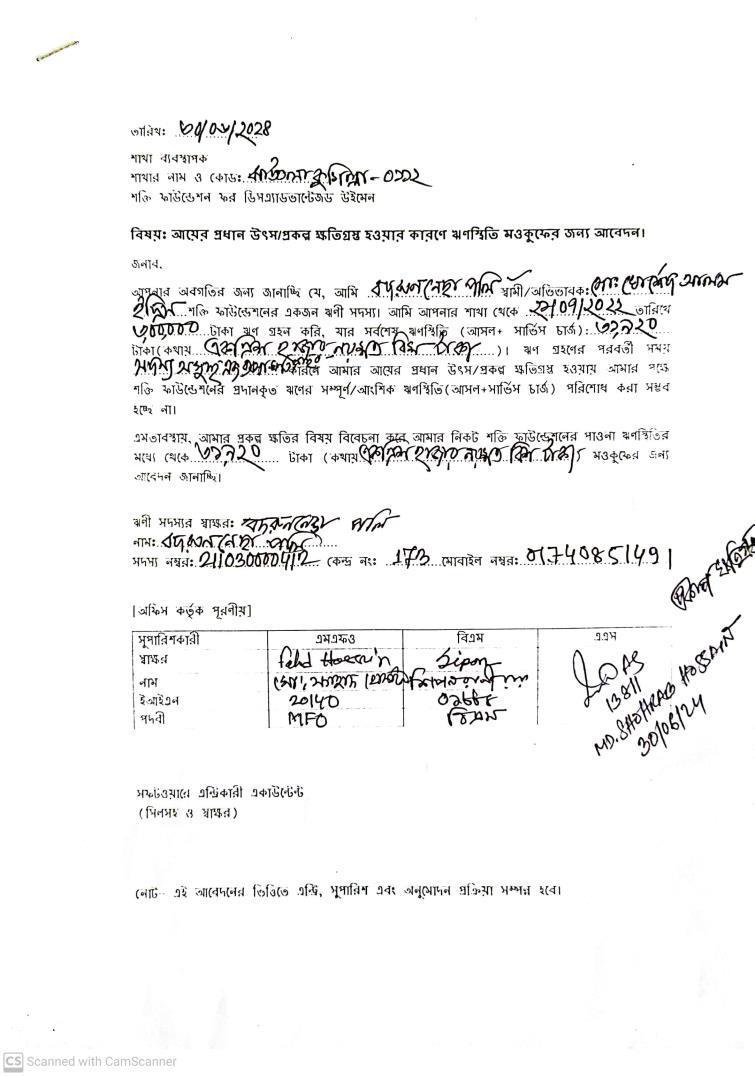 তারিখ: ৩০/০৬/২০২৪
শাখা ব্যবস্থাপক
শাখার নাম ও কোড: - ০১১২
শক্তি ফাউন্ডেশন ফর ডিসএ্যাডভান্টেজড উইমেন
বিষয়: আয়ের প্রধান উৎস/প্রকল্প ক্ষতিগ্রস্থ হওয়ার কারণে ঋণস্থিতি মওকুফের জন্য আবেদন।
জনাব,
আপনার অবগতির জন্য জানাচ্ছি যে, আমি বদরুননেছা পলি স্বামী/অভিভাবক: মোঃ খোর্শেদ আলম
শক্তি ফাউন্ডেশনের একজন ঋণী সদস্য। আমি আপনার শাখা থেকে ২৮/০৭/২০২২ তারিখে
টাকা ঋণ গ্রহন করি, যার সর্বশেষ ঋণস্থিতি (আসল+ সার্ভিস চার্জ): ৩১৯২০
টাকা(কথায় একত্রিশ হাজার নয়শত বিশ টাকা )। ঋণ গ্রহণের পরবর্তী সময়
সদস্য অসুস্থ কারণে আমার আয়ের প্রধান উৎস/প্রকল্প ক্ষতিগ্রস্থ হওয়ায় আমার পক্ষে
শক্তি ফাউন্ডেশনের প্রদানকৃত ঋণের সম্পূর্ণ/আংশিক ঋণস্থিতি(আসল+সার্ভিস চার্জ) পরিশোধ করা সম্ভব
হচ্ছে না।
এমতাবস্থায়, আমার প্রকল্প ক্ষতির বিষয় বিবেচনা করে আমার নিকট শক্তি ফাউন্ডেশনের পাওনা ঋণস্থিতির
মধ্যে থেকে ৩১৯২০ টাকা (কথায় একত্রিশ হাজার নয়শত বিশ টাকা) মওকুফের জন্য
আবেদন জানাচ্ছি।
ঋণী সদস্যর স্বাক্ষর: বদরুননেছা পলি
নাম: বদরুননেছা পলি
সদস্য নম্বর: 211030000412 কেন্দ্র নং: 173 মোবাইল নম্বর: 01740851491
[অফিস কর্তৃক পূরণীয়]
সুপারিশকারী এমএফও বিএম এএম
স্বাক্ষর Fehd Hossain Sipon
নাম
ইআইএন 20140
পদবী MFO বিএম
AS
13811
MD. SHOHRAB HOSSAIN
30/06/24
সফটওয়ারে এন্ট্রিকারী একাউন্টেন্ট
(সিলসহ ও স্বাক্ষর)
নোট- এই আবেদনের ভিত্তিতে এন্ট্রি, সুপারিশ এবং অনুমোদন প্রক্রিয়া সম্পন্ন হবে।
CS Scanned with CamScanner